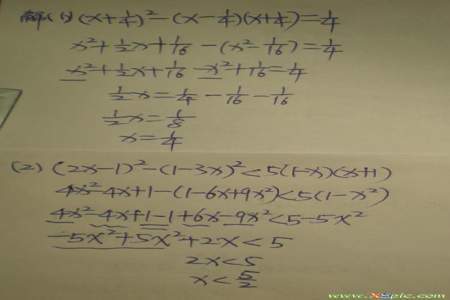 解:(1) (x+1/4)²-(x-1/4)(x+1/4)=1/4
x²+1/2x+1/16-(x²-1/16)=1/4
x²+1/2x+1/16-x²+1/16=1/4
1/2x=1/4-1/16-1/16
1/2x=1/8
x=1/4
(2) (2x-1)²-(1-3x)²<5(1-x)(x+1)
4x²-4x+1-(1-6x+9x²)<5(1-x²)
4x²-4x+1-1+6x-9x²<5-5x²
-5x²+5x²+2x<5
2x<5
x<5/2
www.XSpic.com